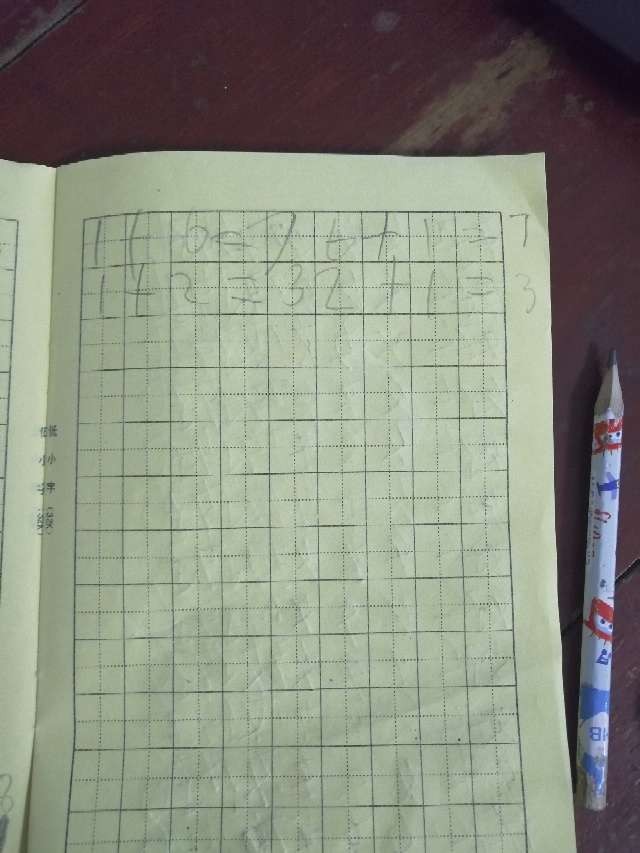 1+6=7 6+1=7
1+2=3 2+1=3
HB